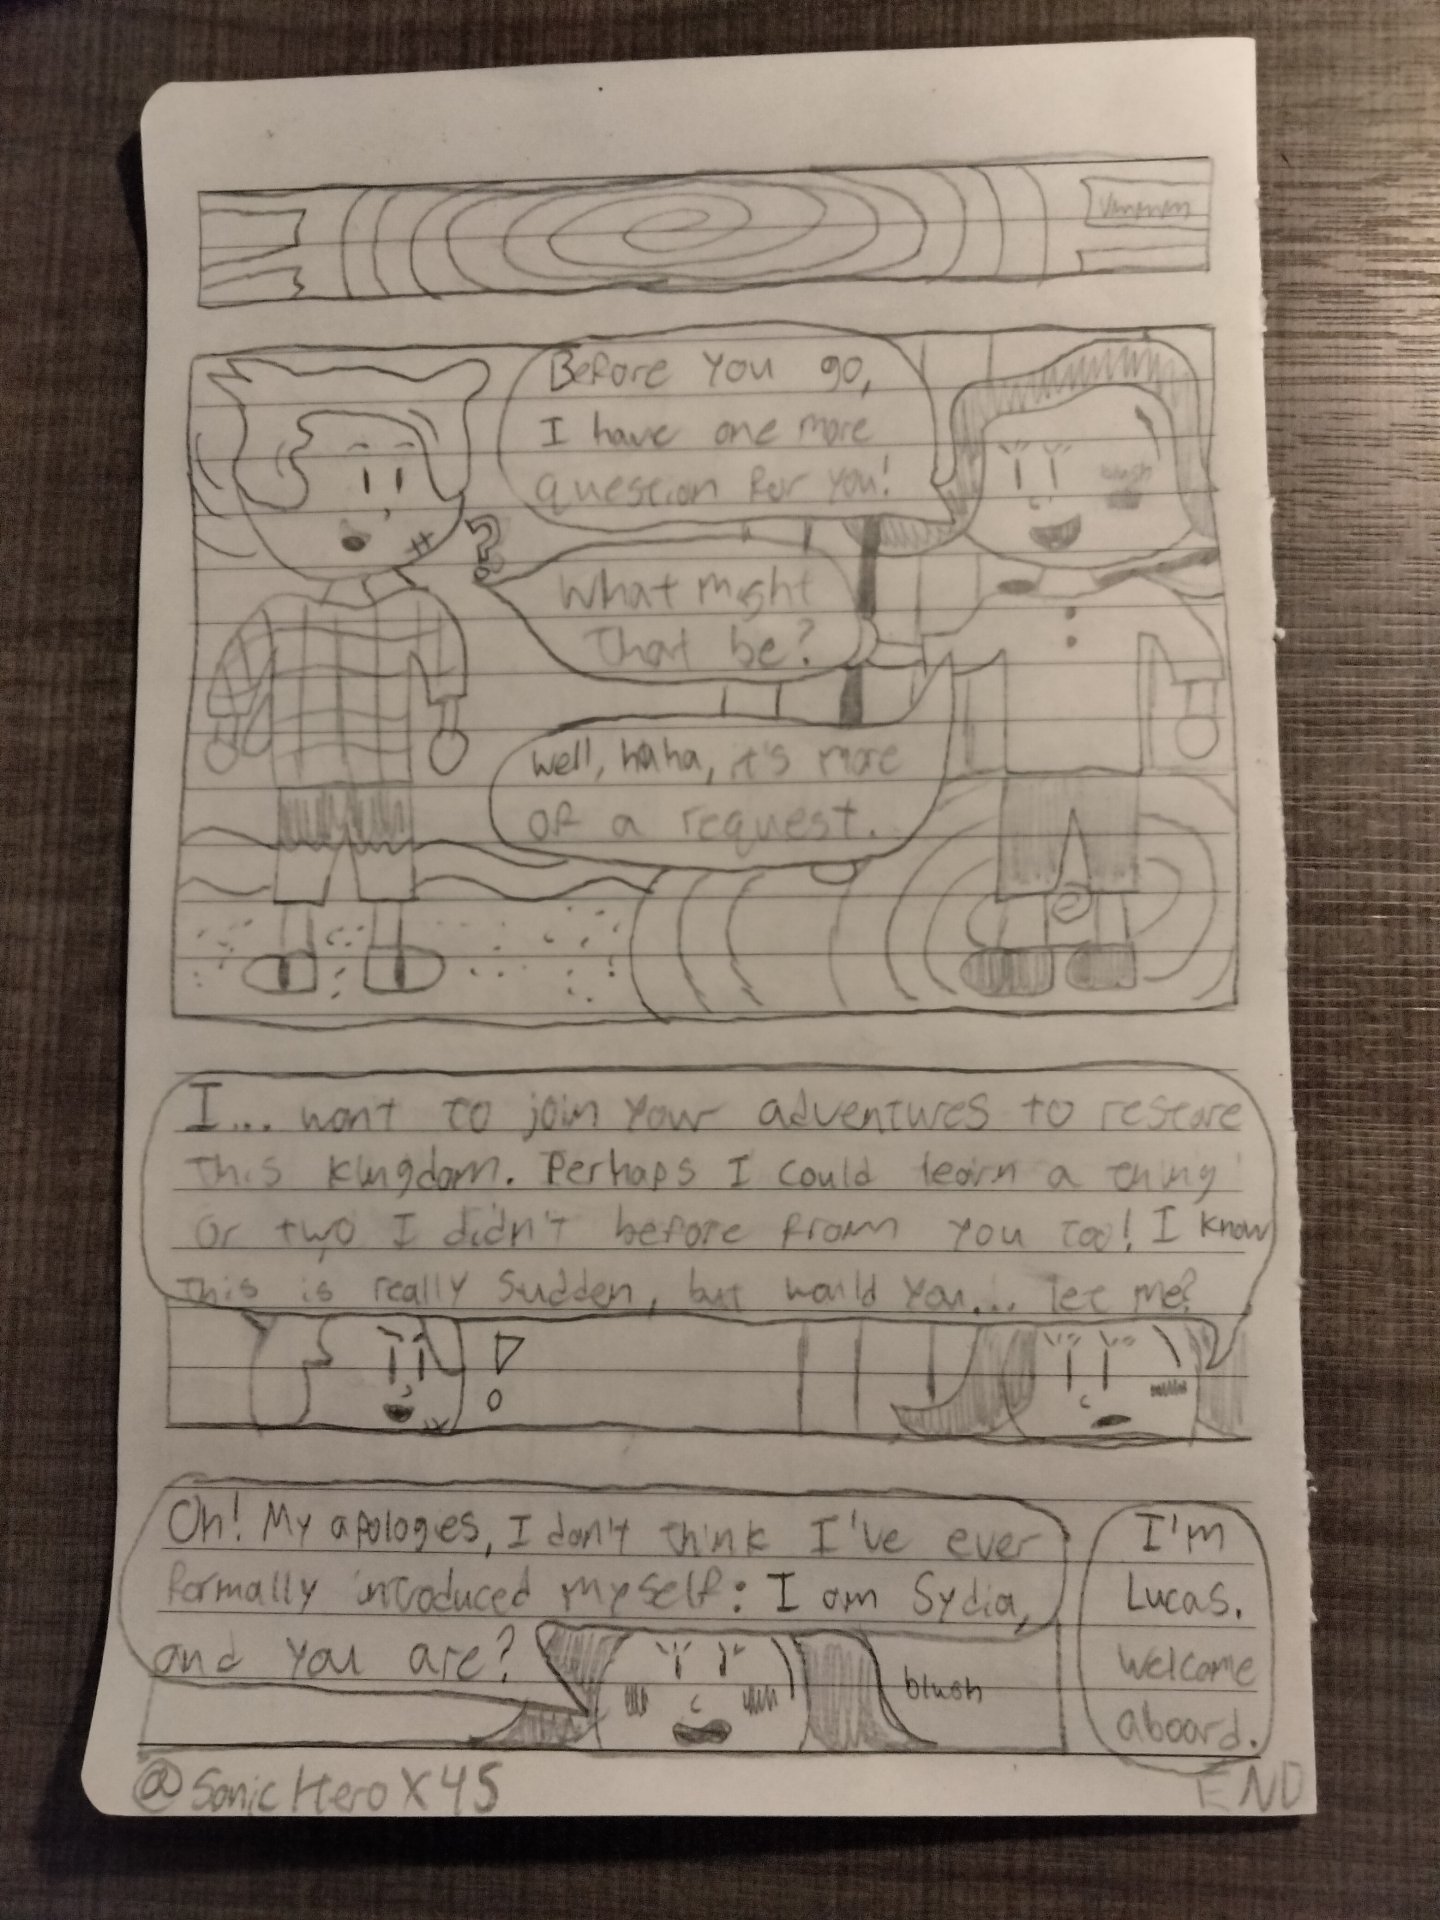 Vmmmm
Before you go,
I have one more
question for you!
blush
?
What might
that be?
Well, haha, it's more
of a request.
I... want to join your adventures to restore
this kingdom. Perhaps I could learn a thing
or two I didn't before from you too! I know
this is really sudden, but would you... let me?
!
Oh! My apologies, I don't think I've ever
formally introduced myself: I am Sydia,
and you are?
blush
I'm
Lucas.
Welcome
aboard.
@SonicHeroX45
END